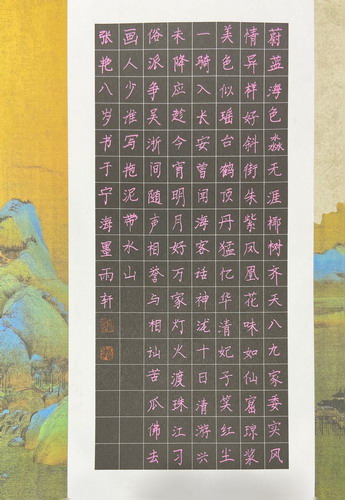 蔚蓝海色淼无涯椰树齐天八九家委实风
情异样好斜街朱紫凤凰花味如仙窟琼浆
美色似瑶台鹤顶丹猛忆华清妃子笑红尘
一骑入长安曾闻海客话神泷十日清游兴
未降应趁今宵明月好万家灯火渡珠江刁
俗派争吴浙间随声相誉与相讪苦瓜佛去
画人少谁写拖泥带水山
张艳八岁书于宁海墨雨轩